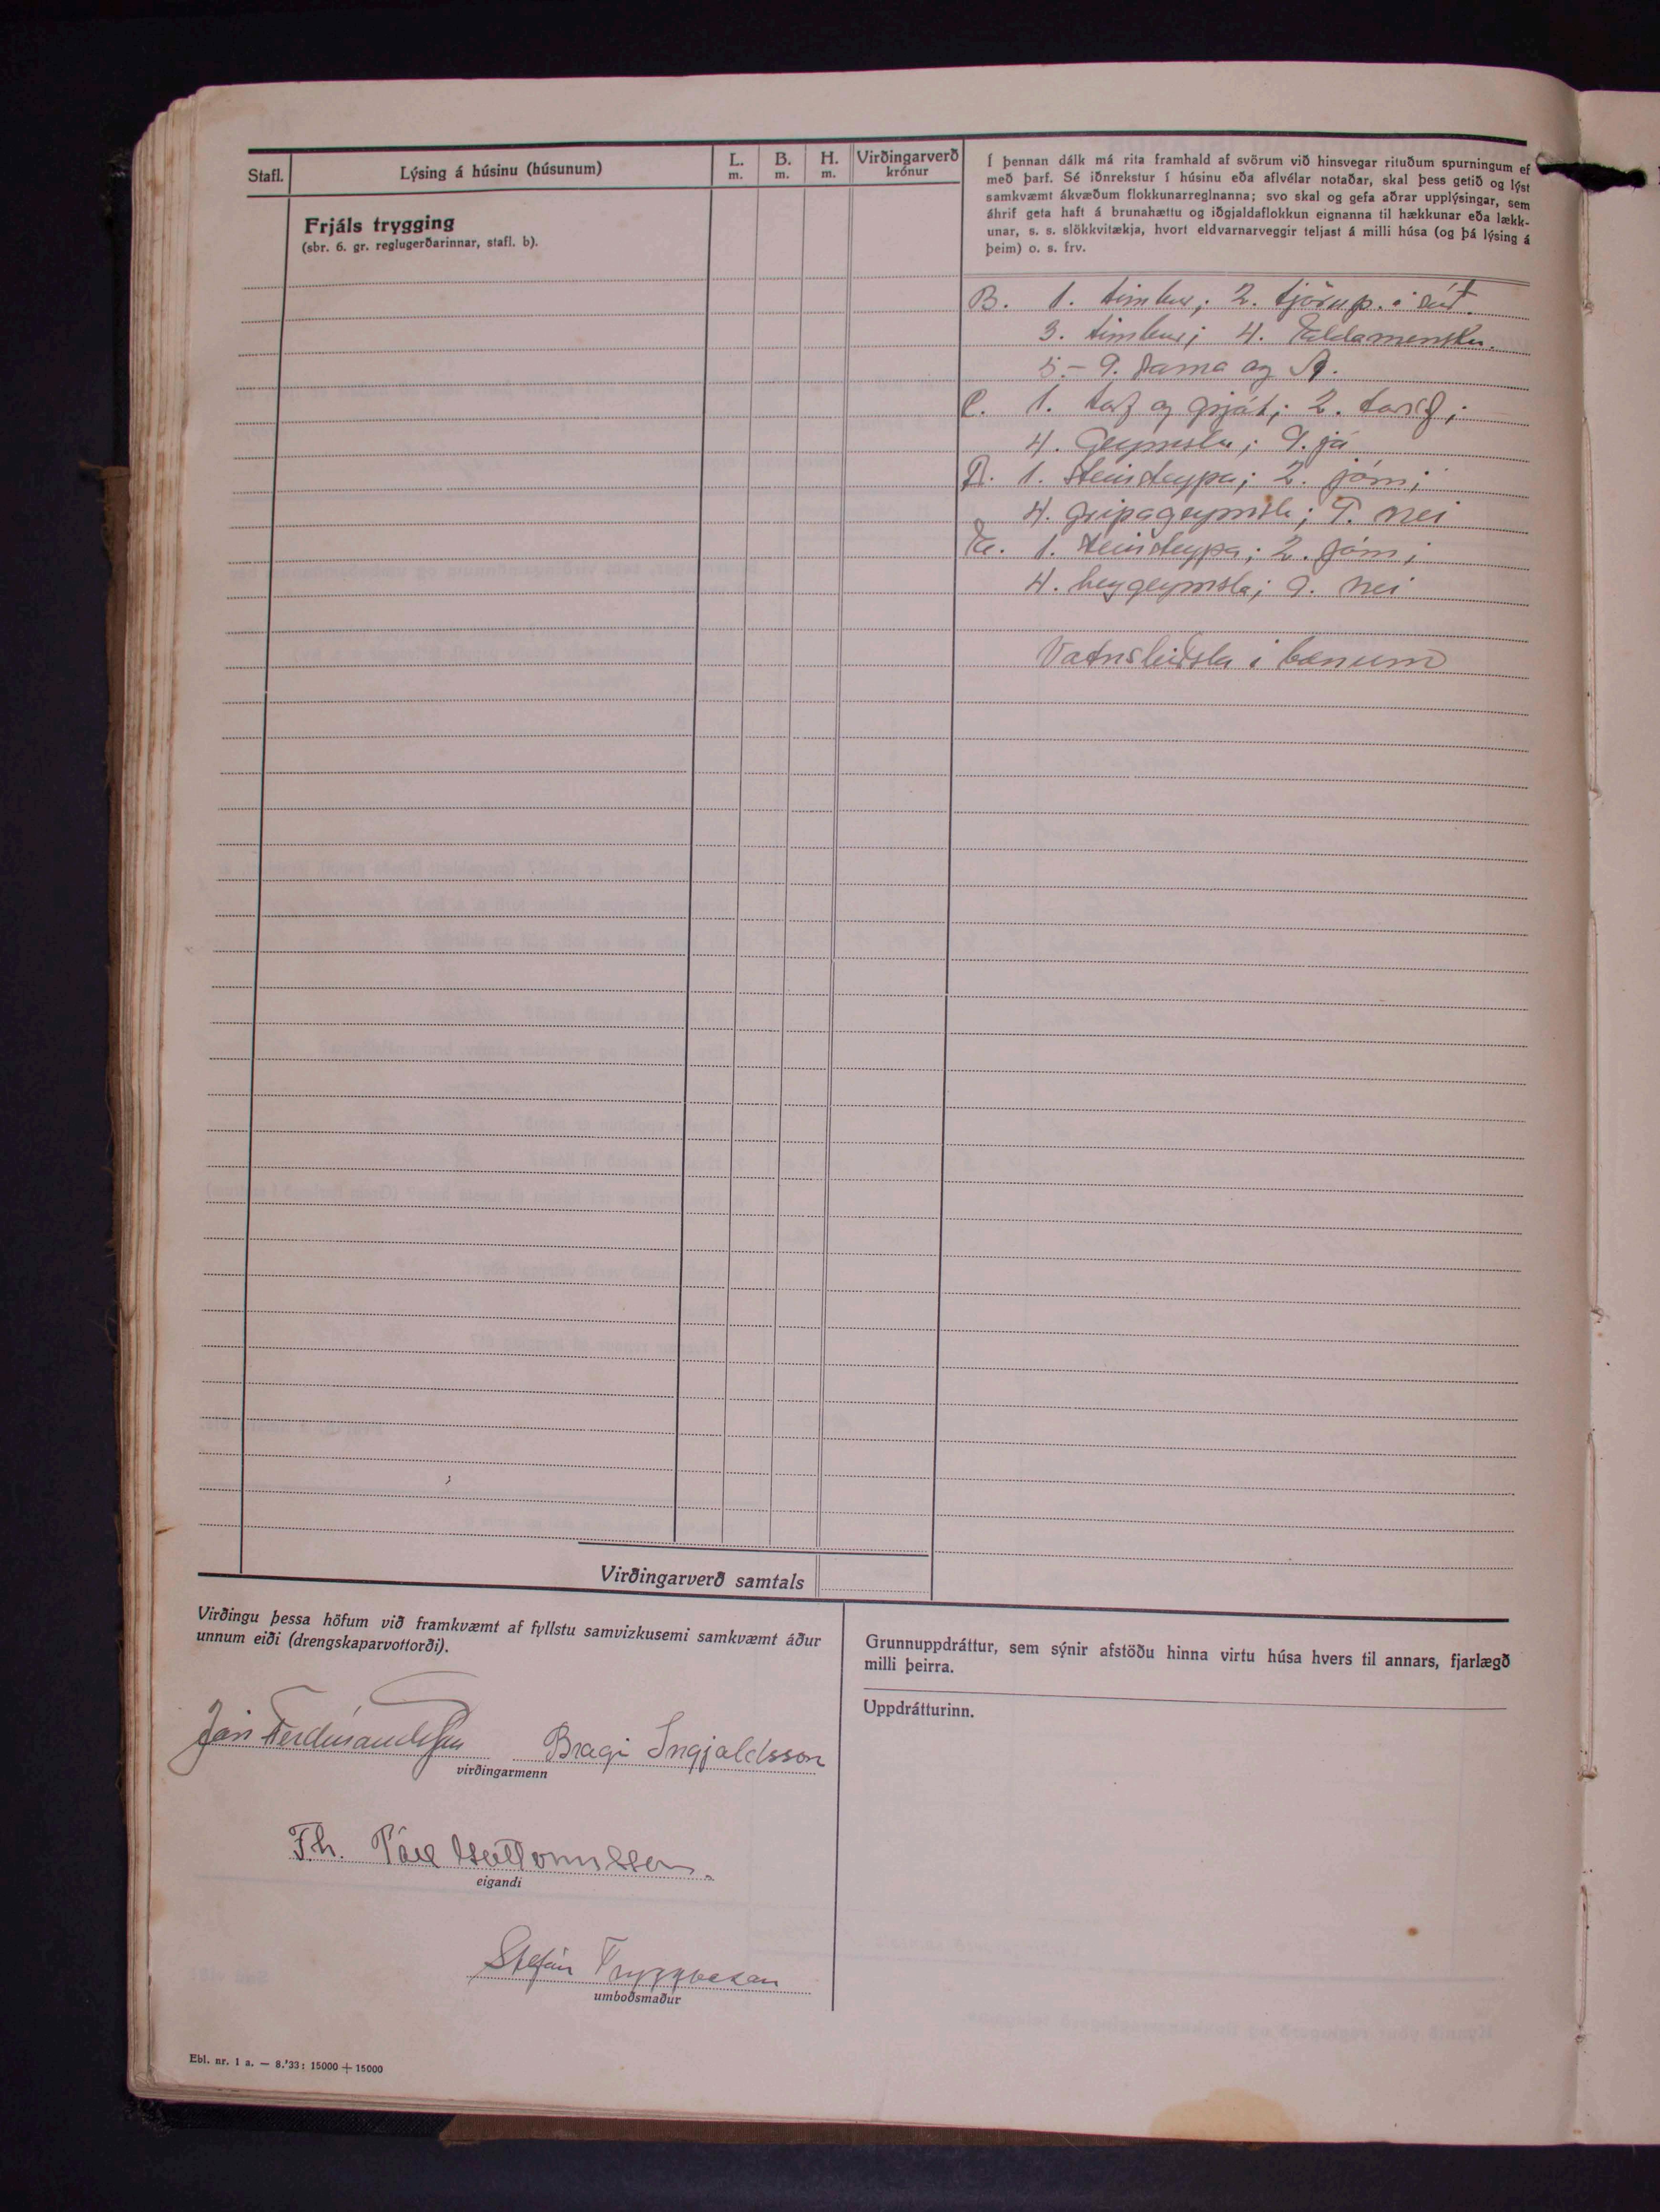 Stafl.
Lýsing á húsinu (húsunum)
L.
m.
B.
m.
H.
m.
Virðingarverð
krónur
Frjáls trygging
(sbr. 6. gr. reglugerðarinnar, stafl. b).
Í þennan dálk má rita framhald af svörum við hinsvegar rituðum spurningum ef
með þarf. Sé iðnrekstur í húsinu eða aflvélar notaðar, skal þess getið og lýst
samkvæmt ákvæðum flokkunarreglnanna; svo skal og gefa aðrar upplýsingar, sem
áhrif geta haft á brunahættu og iðgjaldaflokkun eignanna til hækkunar eða lækk-
unar, s. s. slökkvitækja, hvort eldvarnarveggir teljast á milli húsa (og þá lýsing á
þeim) o. s. frv.
B. 1. timbur; 2. tjörup. i súð.
3. timbur; 4. Eldamenska.
5.-9. Sama og A.
C. 1. torf og grjót; 2. torf;
4. Geymsla; 9. já
D. 1. Steinsteypa; 2. járn;
4. gripageymsla; 9. nei
E. 1. Steinsteypa; 2. járn;
4. heygeymsla; 9. nei
Vatnsleiðsla i bænum
Virðingarverð samtals
Virðingu þessa höfum við framkvæmt af fyllstu samvizkusemi samkvæmt áður
unnum eiði (drengskaparvottorði).
Jón Ferdinandsson Bragi Ingjaldsson
virðingarmenn
F.h. Páll
eigandi
Stefán Tryggvason
umboðsmaður
Grunnuppdráttur, sem sýnir afstöðu hinna virtu húsa hvers til annars, fjarlægð
milli þeirra.
Uppdrátturinn.
Ebl. nr. 1 a. — 8.'33: 15000 + 15000